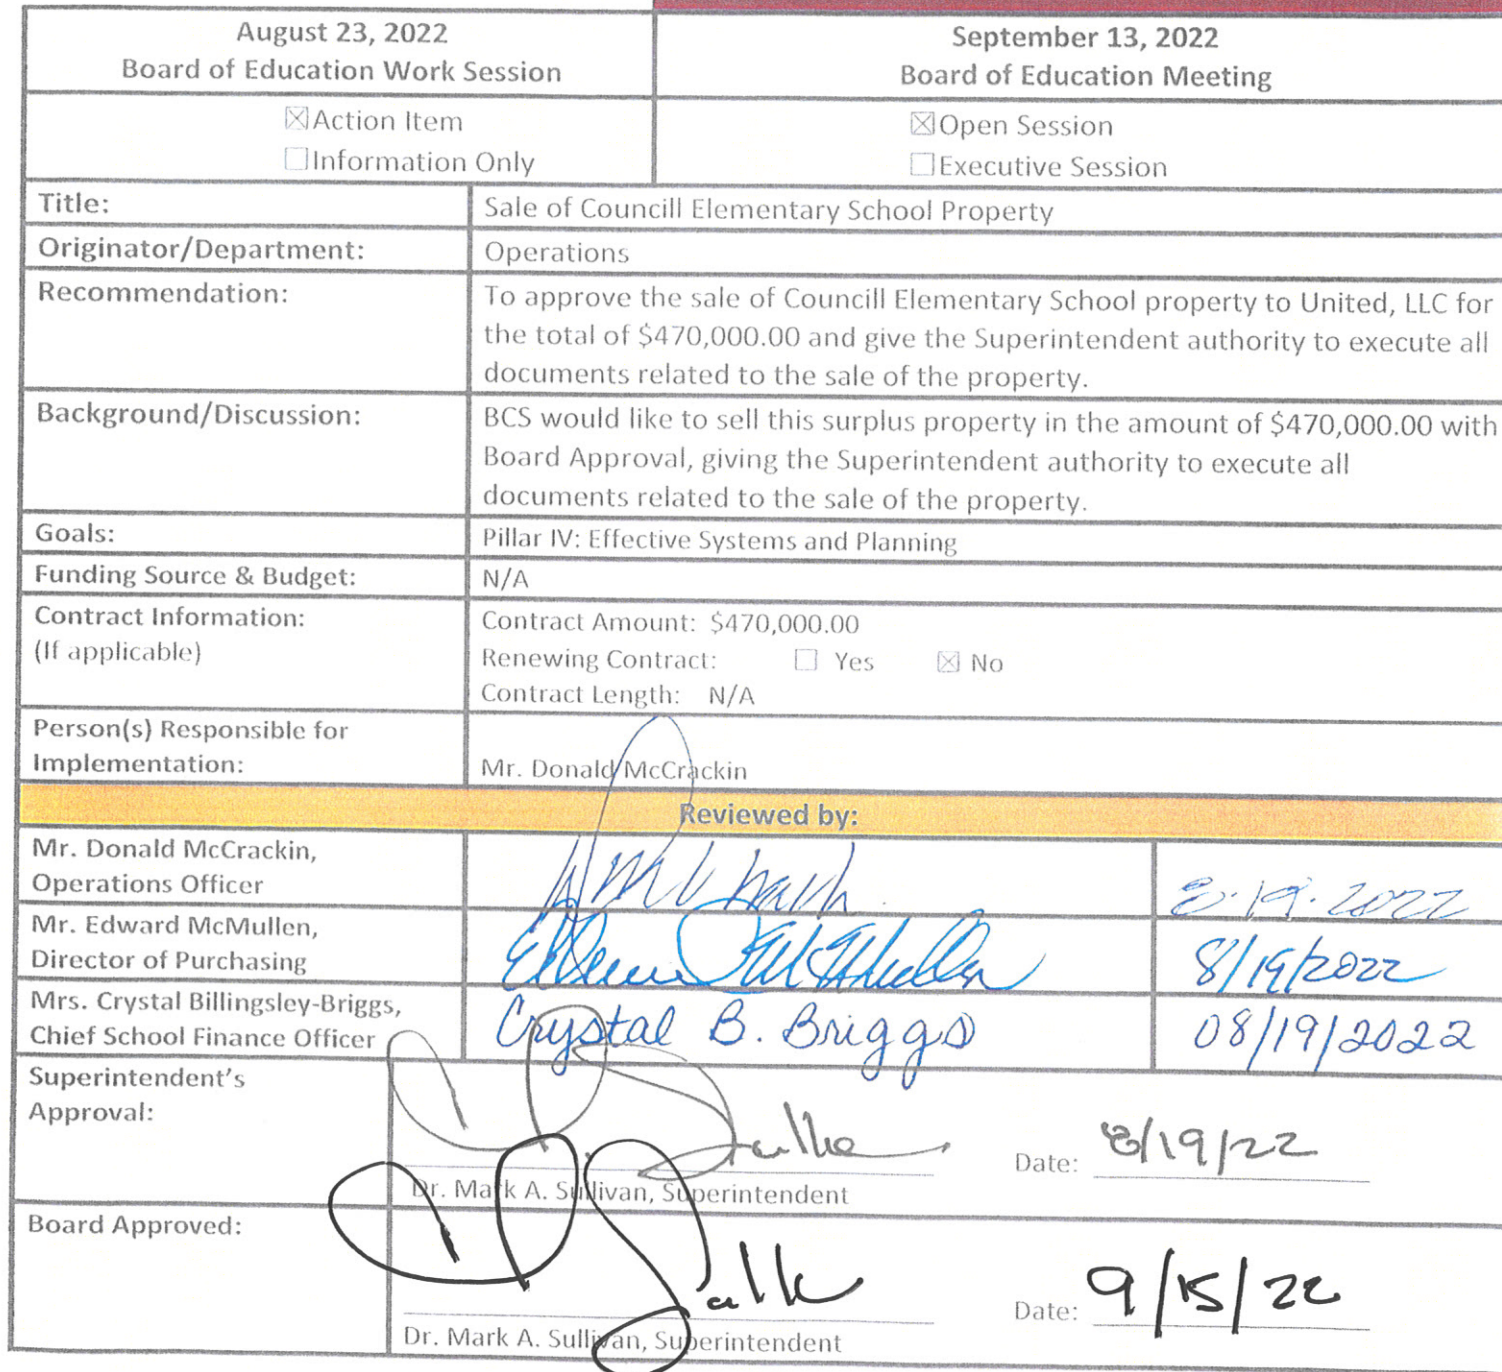 August 23, 2022
Board of Education Work Session
September 13, 2022
Board of Education Meeting
☒Action Item
☐Information Only
☒Open Session
☐Executive Session
Title:
Sale of Councill Elementary School Property
Originator/Department:
Operations
Recommendation:
To approve the sale of Councill Elementary School property to United, LLC for
the total of $470,000.00 and give the Superintendent authority to execute all
documents related to the sale of the property.
Background/Discussion:
BCS would like to sell this surplus property in the amount of $470,000.00 with
Board Approval, giving the Superintendent authority to execute all
documents related to the sale of the property.
Goals:
Pillar IV: Effective Systems and Planning
Funding Source & Budget:
N/A
Contract Information:
(If applicable)
Contract Amount: $470,000.00
Renewing Contract: ☐ Yes ☒ No
Contract Length: N/A
Person(s) Responsible for
Implementation:
Mr. Donald McCrackin
Reviewed by:
Mr. Donald McCrackin,
Operations Officer
8.19.2022
Mr. Edward McMullen,
Director of Purchasing
8/19/2022
Mrs. Crystal Billingsley-Briggs,
Chief School Finance Officer
Crystal B. Briggs
08/19/2022
Superintendent's
Approval:
Date: 8/19/22
Dr. Mark A. Sullivan, Superintendent
Board Approved:
Date: 9/15/22
Dr. Mark A. Sullivan, Superintendent